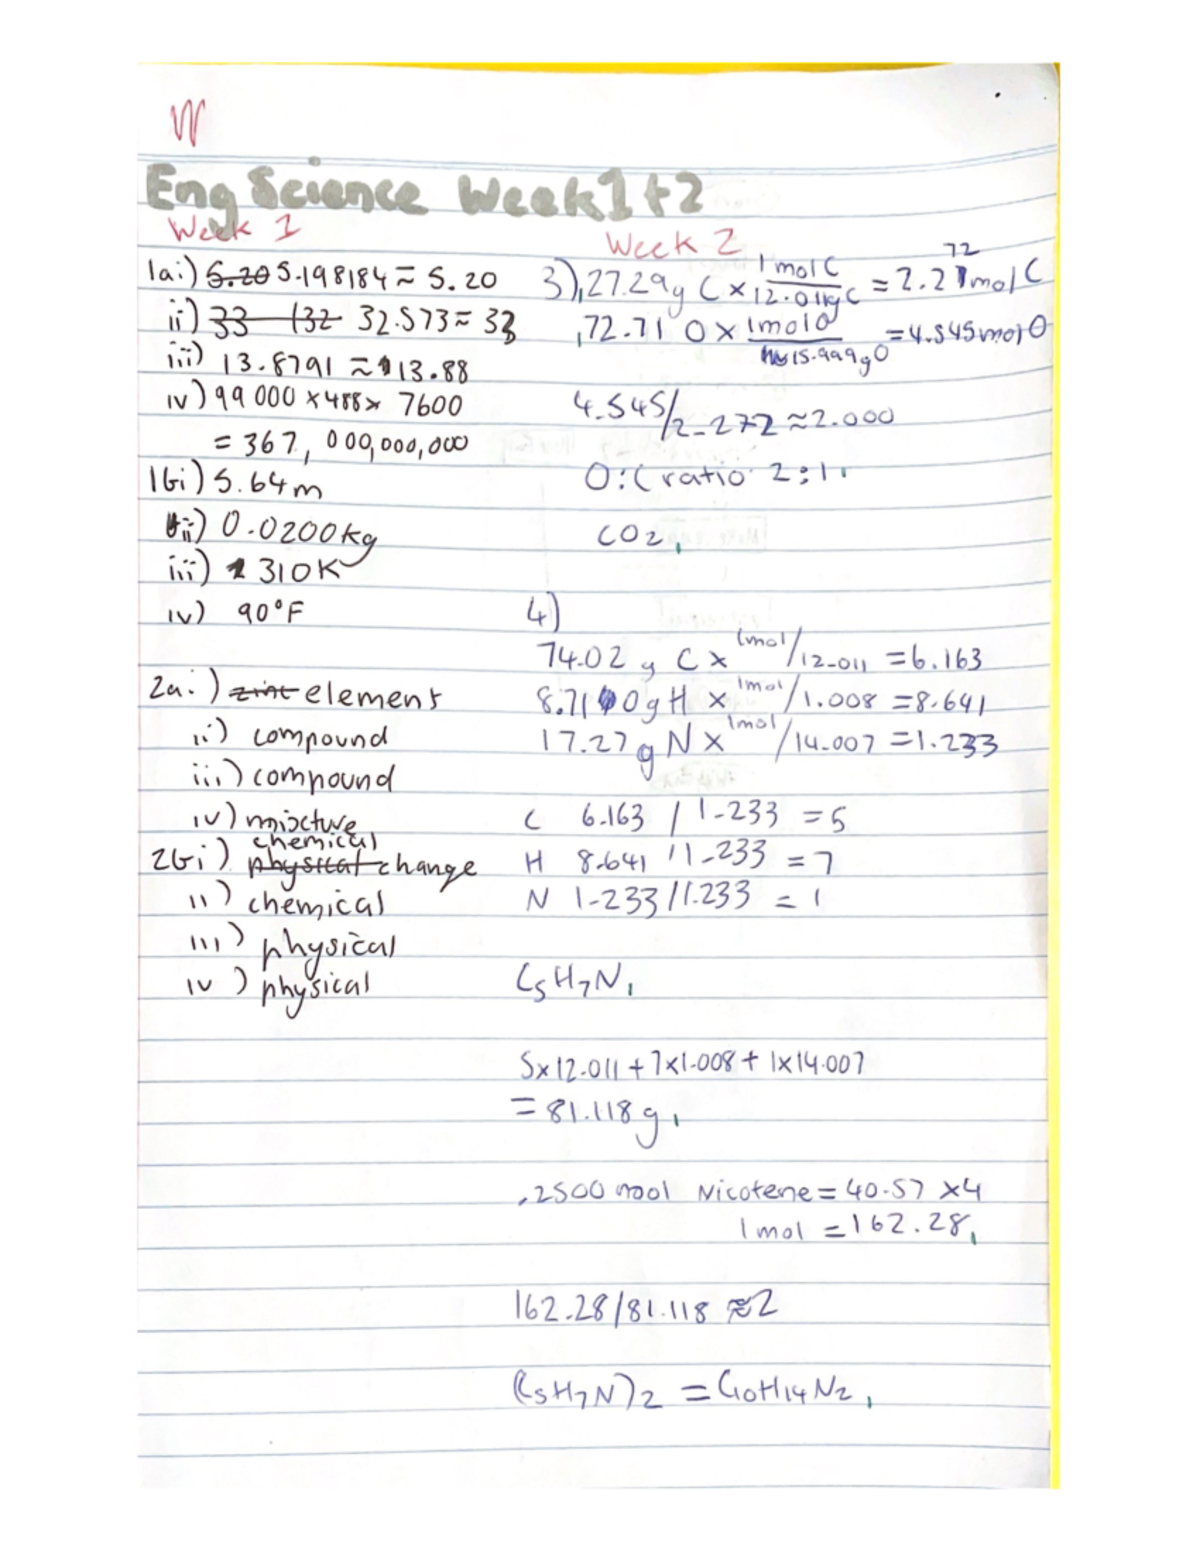 Eng Science Week 1 + 2
Week 1
1ai) 5.20 5.198184 ≈ 5.20
ii) 33 (32 32.573 ≈ 33
iii) 13.8791 ≈ 13.88
iv) 99 000 × 488 × 7600
= 367, 000,000,000
1bi) 5.64m
ii) 0.0200kg
iii) 310K
iv) 90°F
2a.) zinc element
ii) compound
iii) compound
iv) mixture
chemical
2bi) physical change
ii) chemical
iii) physical
iv) physical
Week 2
72
3) 27.29g C × 1 mol C / 12.011g C = 2.27 mol C
72.71 O × 1 mol O / 15.999g O = 4.545 mol O
4.545/2.272 ≈ 2.000
O:C ratio 2:1
CO2
4)
74.02 g C × 1mol/12.011 = 6.163
8.710g H × 1mol/1.008 = 8.641
17.27 g N × 1mol/14.007 = 1.233
C 6.163 / 1.233 = 5
H 8.641 / 1.233 = 7
N 1.233 / 1.233 = 1
C5H7N
5×12.011 + 7×1.008 + 1×14.007
= 81.118 g
.2500 mol Nicotene = 40.57 ×4
1 mol = 162.28
162.28/81.118 ≈ 2
(C5H7N)2 = C10H14N2